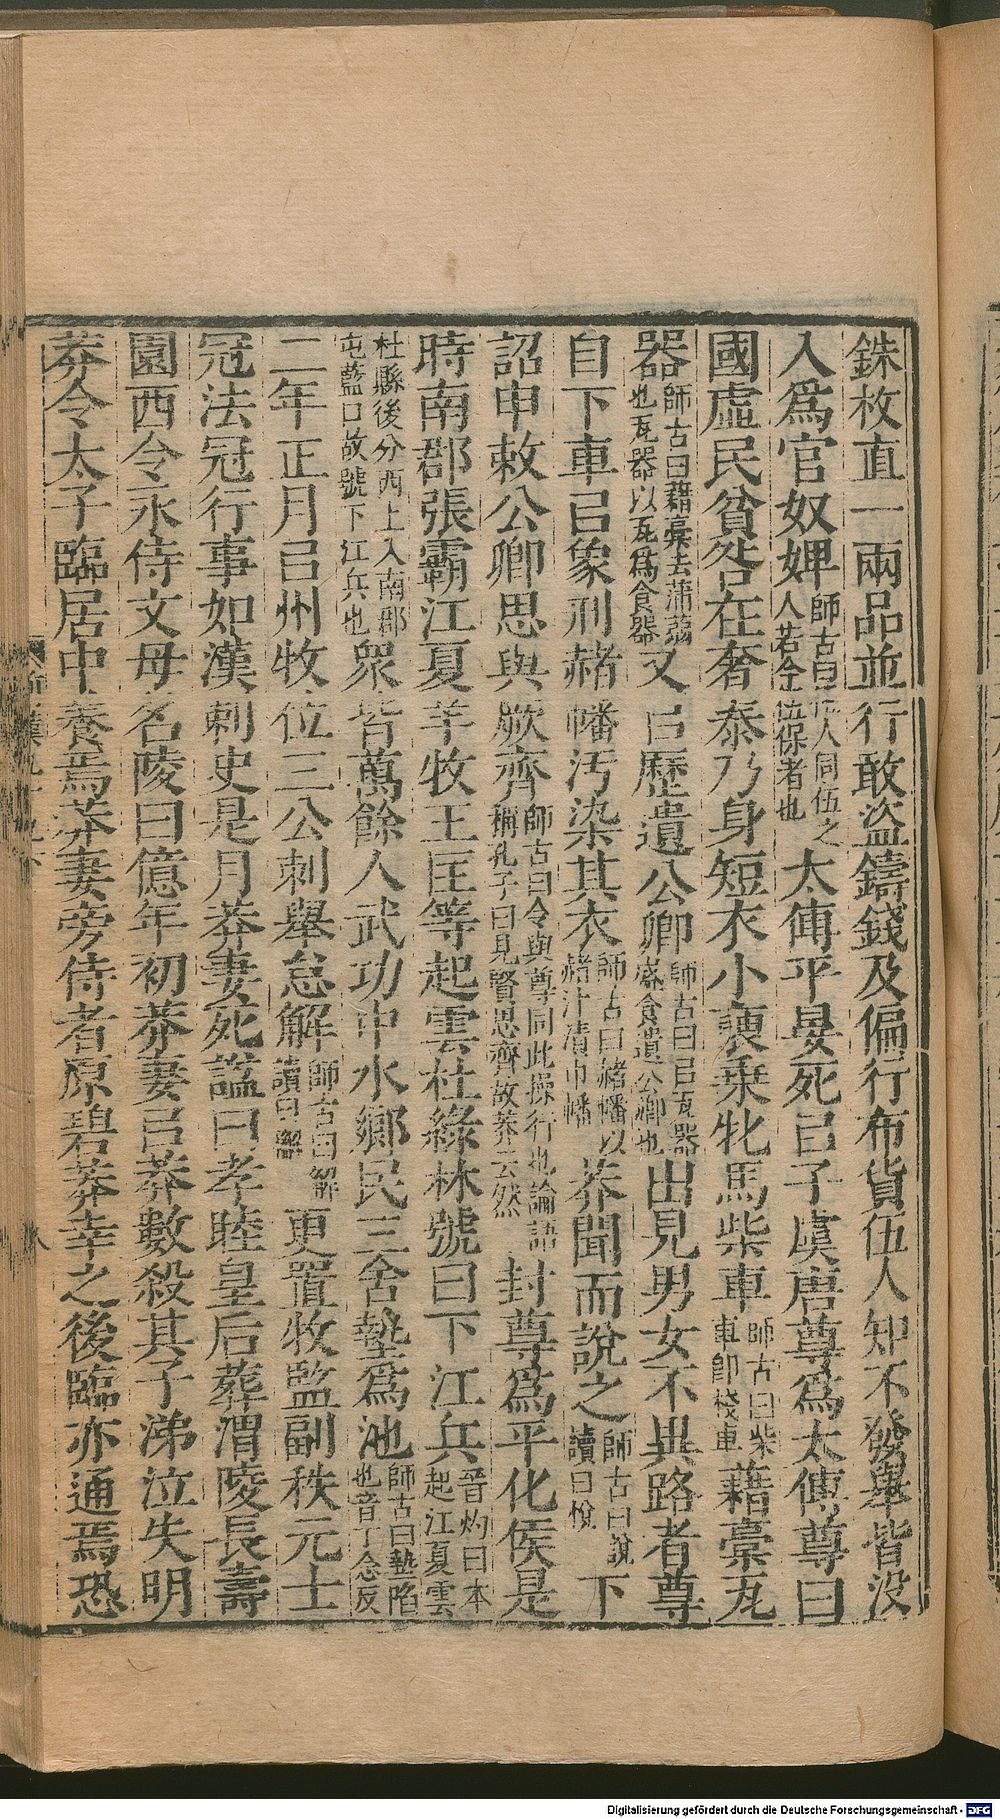 銖枚直一兩品並行敢盜鑄錢及偏行布貨伍人知不發舉皆没
入爲官奴婢師古曰伍人同伍之人若今伍保者也太傅平晏死㠯予虞唐尊爲太傅尊曰
國虛民貧咎在奢泰乃身短衣小褏乗牝馬柴車師古曰柴車即棧車藉槀瓦
器師古曰藉槀去蒲蒻也瓦器以瓦爲食器又㠯歷遺公卿師古曰㠯瓦器盛食遺公卿也出見男女不異路者尊
自下車㠯象刑赭幡汚染其衣師古曰赭幡以赭汁漬巾幡莽聞而説之師古曰説讀曰悅下
詔申敕公卿思與厥齊師古曰令與尊同此操行也論語稱孔子曰見賢思齊故莽云然封尊爲平化侯是
時南郡張霸江夏羊牧王匡等起雲杜綠林號曰下江兵晉灼曰本起江夏雲
杜縣後分西上入南郡屯藍口故號下江兵也衆皆萬餘人武功中水鄉民三舍墊爲池師古曰墊陷也音丁念反
二年正月㠯州牧位三公刺舉怠解師古曰解讀曰懈更置牧監副秩元士
冠法冠行事如漢刺史是月莽妻死謚曰孝睦皇后葬渭陵長壽
園西令永侍文母名陵曰億年初莽妻㠯莽數殺其子涕泣失明
莽令太子臨居中養焉莽妻旁侍者原碧莽幸之後臨亦通焉恐
Digitalisierung gefördert durch die Deutsche Forschungsgemeinschaft - DFG